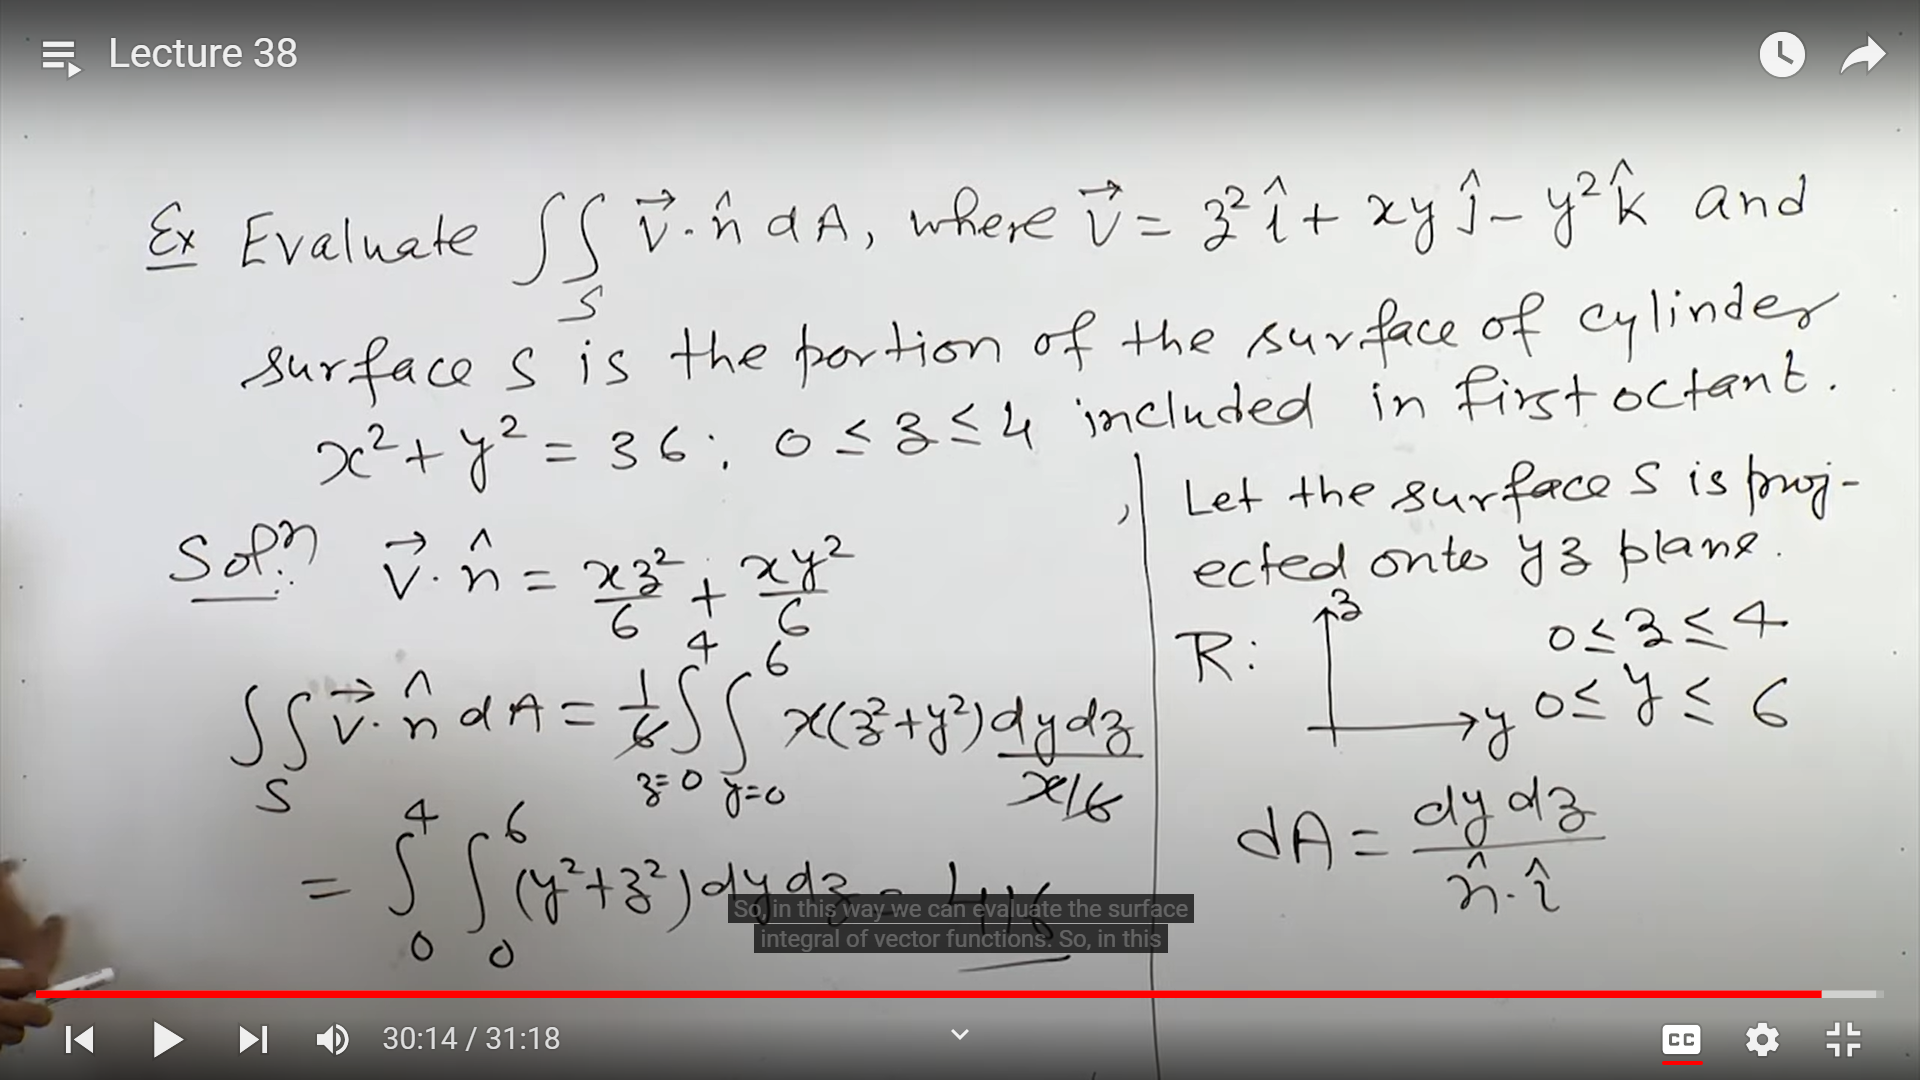 Lecture 38
Ex Evaluate ∬_S v⃗·n̂ dA, where v⃗ = z² î + xy ĵ − y² k̂ and
surface S is the portion of the surface of cylinder
x² + y² = 36; 0 ≤ z ≤ 4 included in first octant.
Solⁿ: v⃗·n̂ = xz²/6 + xy²/6
∬_S v⃗·n̂ dA = 1/6 ∫_{z=0}^{4} ∫_{y=0}^{6} x(z²+y²) dy dz/(x/6)
= ∫_0^4 ∫_0^6 (y²+z²) dy dz = 416
, Let the surface S is proj-
ected onto yz plane.
R: z y 0 ≤ z ≤ 4
0 ≤ y ≤ 6
dA = dy dz/(n̂·î)
So, in this way we can evaluate the surface
integral of vector functions. So, in this
30:14 / 31:18
CC